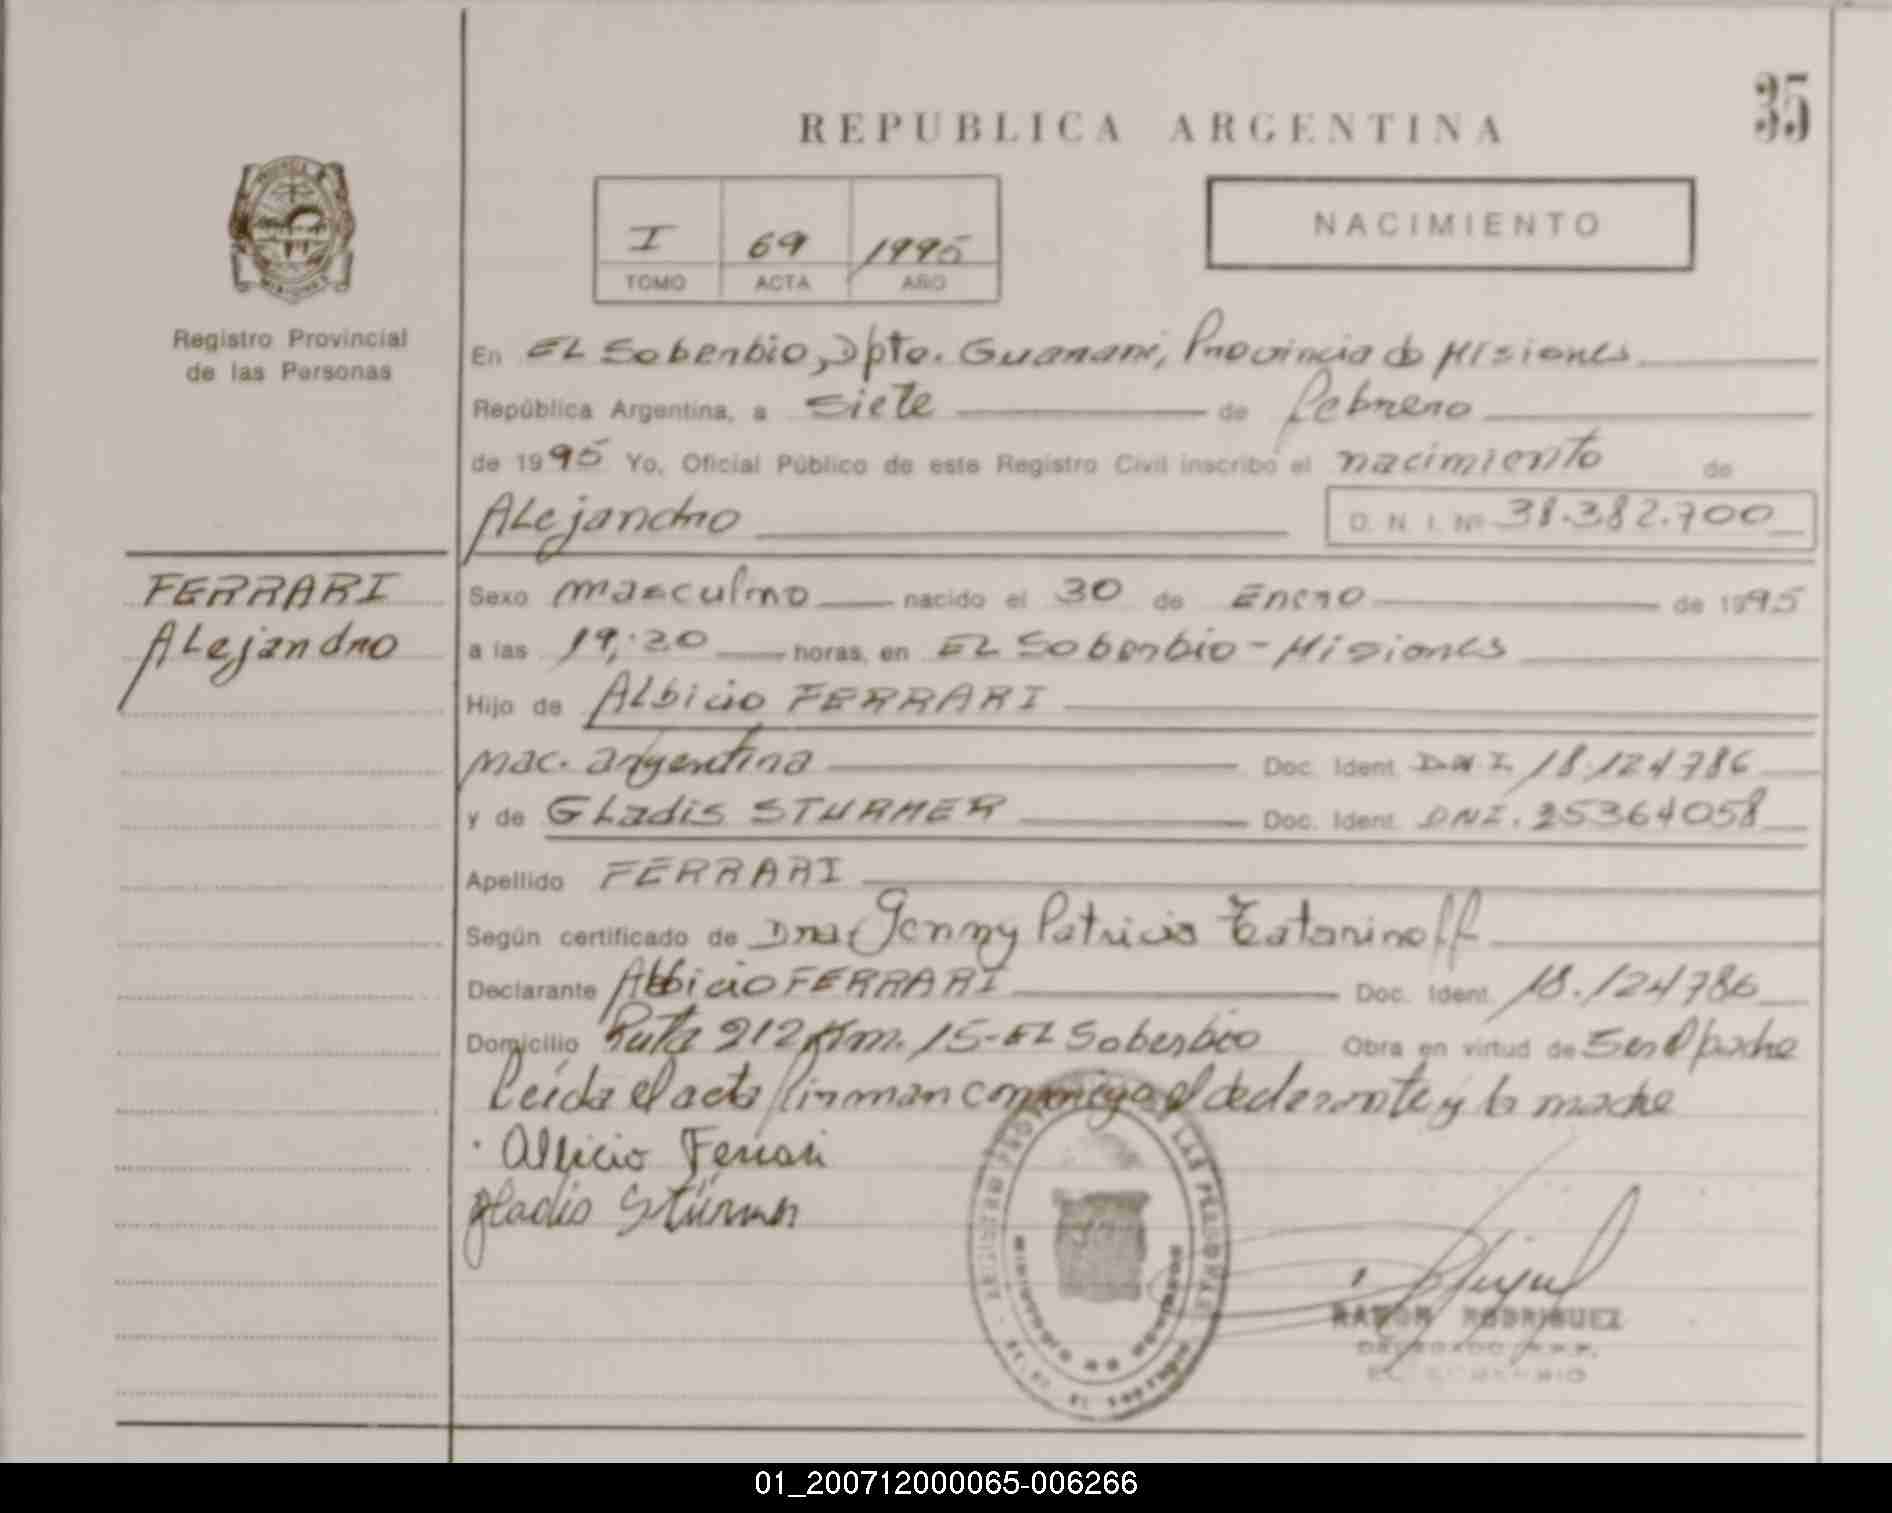 35
REPUBLICA ARGENTINA
I 69 1995
TOMO ACTA AÑO
NACIMIENTO
Registro Provincial
de las Personas
En EL Soberbio, Dpto. Guarani, Provincia de Misiones
República Argentina, a siete de febrero
de 1995 Yo, Oficial Público de este Registro Civil inscribo el nacimiento de
Alejandro D. N. I. Nº 38.382.700
FERRARI
Alejandro
Sexo masculino nacido el 30 de Enero de 1995
a las 19:20 horas, en EL Soberbio - Misiones
Hijo de Albicio FERRARI
nac. argentina Doc. Ident. D.N.I. 18.124786
y de Gladis STURMER Doc. Ident. DNI. 25364058
Apellido FERRARI
Según certificado de Dra Jenny Patricia Tatarinoff
Declarante Albicio FERRARI Doc. Ident. 18.124786
Domicilio Ruta 212 Km. 15 - EL Soberbio Obra en virtud de Ser el padre
Leída el acta firman conmigo el declarante y la madre
Albicio Ferrari
Gladis Stürmer
RAMON RODRIGUEZ
DELEGADO R.P.P.
EL SOBERBIO
01_200712000065-006266